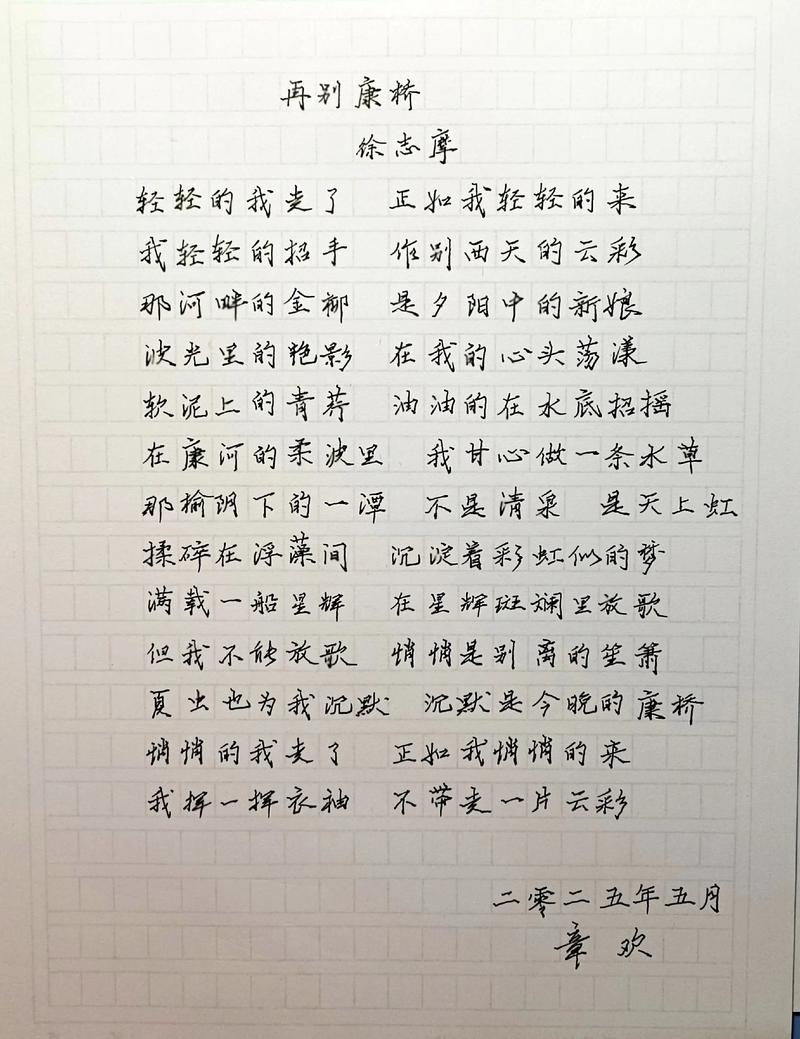 再别康桥
徐志摩
轻轻的我走了 正如我轻轻的来
我轻轻的招手 作别西天的云彩
那河畔的金柳 是夕阳中的新娘
波光里的艳影 在我的心头荡漾
软泥上的青荇 油油的在水底招摇
在康河的柔波里 我甘心做一条水草
那榆阴下的一潭 不是清泉 是天上虹
揉碎在浮藻间 沉淀着彩虹似的梦
满载一船星辉 在星辉斑斓里放歌
但我不能放歌 悄悄是别离的笙箫
夏虫也为我沉默 沉默是今晚的康桥
悄悄的我走了 正如我悄悄的来
我挥一挥衣袖 不带走一片云彩
二零二五年五月
章欢